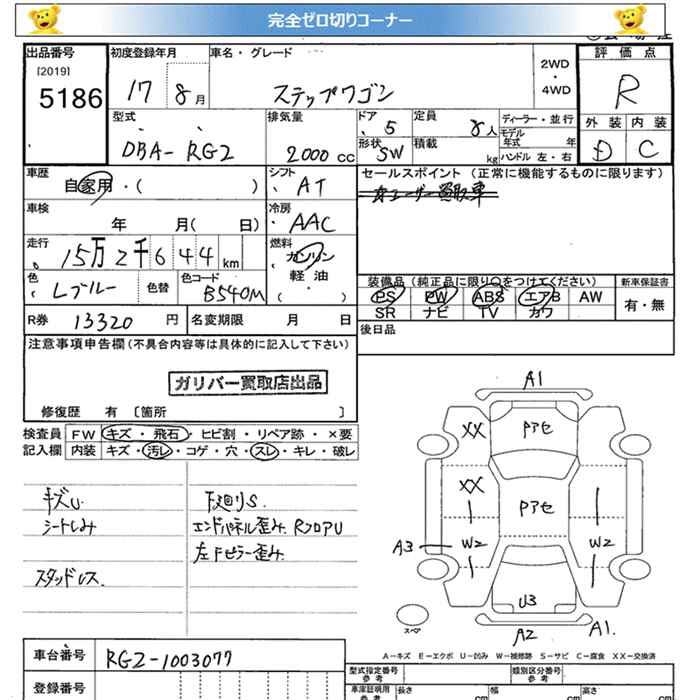 完全ゼロ切りコーナー
出品番号
[2019]
5186
初度登録年月
17 8月
車名・グレード
ステップワゴン
2WD
・
4WD
評価点
R
外装 内装
D C
型式
DBA-RG2
排気量
2000 cc
ドア
5
定員
8人
形状
SW
積載
kg
ディーラー・並行
モデル
年式 年
ハンドル 左・右
車歴
自家用・( )
シフト
AT
セールスポイント (正常に機能するものに限ります)
車検
年 月( 日)
冷房
AAC
走行
15万2千644 km
燃料
ガソリン
軽油
( ・ )
色
Lブルー
色替
色コード
B540M
装備品 (純正品に限り○をつけてください)
PS PW ABS エアB AW
SR ナビ TV カワ
新車保証書
有・無
R券 13320 円
名変期限 月 日
後日品
注意事項申告欄 (不具合内容等は具体的に記入して下さい)
ガリバー買取店出品
修復歴 有 [箇所 ]
検査員 FW キズ・飛石・ヒビ割・リペア跡・×要
記入欄 内装 キズ・汚レ・コゲ・穴・スレ・キレ・破レ
キズU
シートしみ
スタッドレス
下廻りS.
エンドパネル歪み.RフロアU
左Fピラー歪み.
A1
XX
Pアセ
XX
Pアセ
A3
W2
W2
U3
A2
A1.
スペア
A-キズ E-エクボ U-凹み W-補修跡 S-サビ C-腐食 XX-交換済
車台番号
RG2-1003077
登録番号
型式指定番号
参考
類別区分番号
参考
車庫証明用
参考
長さ cm
幅 cm
高さ cm